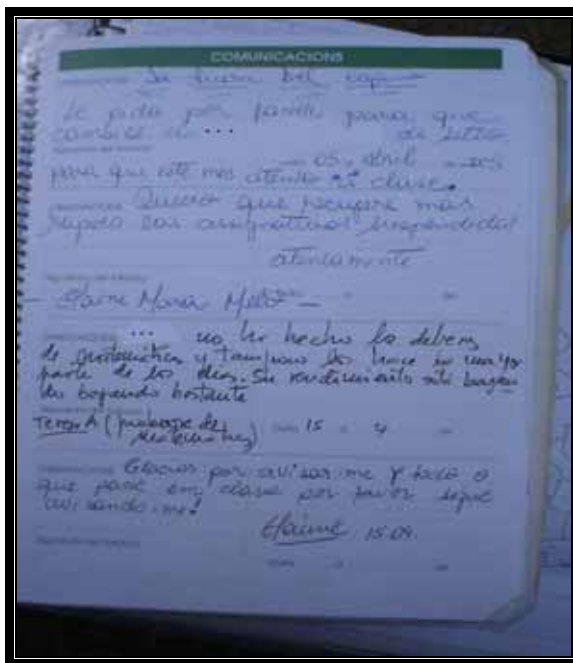 COMUNICACIONS
Le pido por favor para que
cambie de ... de sitio
05 abril
para que esté más atento en clase.
Quiero que recupere más
rapido las assignaturas suspendidas
atentamente
Elaine Maria
... no ha hecho los deberes
de matemática y tampoco los hace la mayor
parte de los días. Su rendimiento está
bajando bastante
Teresa (profesora de
15 4
Gracias por avisar-me y todo o
que pase em classe por favor sigue
avisando-me!
Elaine 15.04.